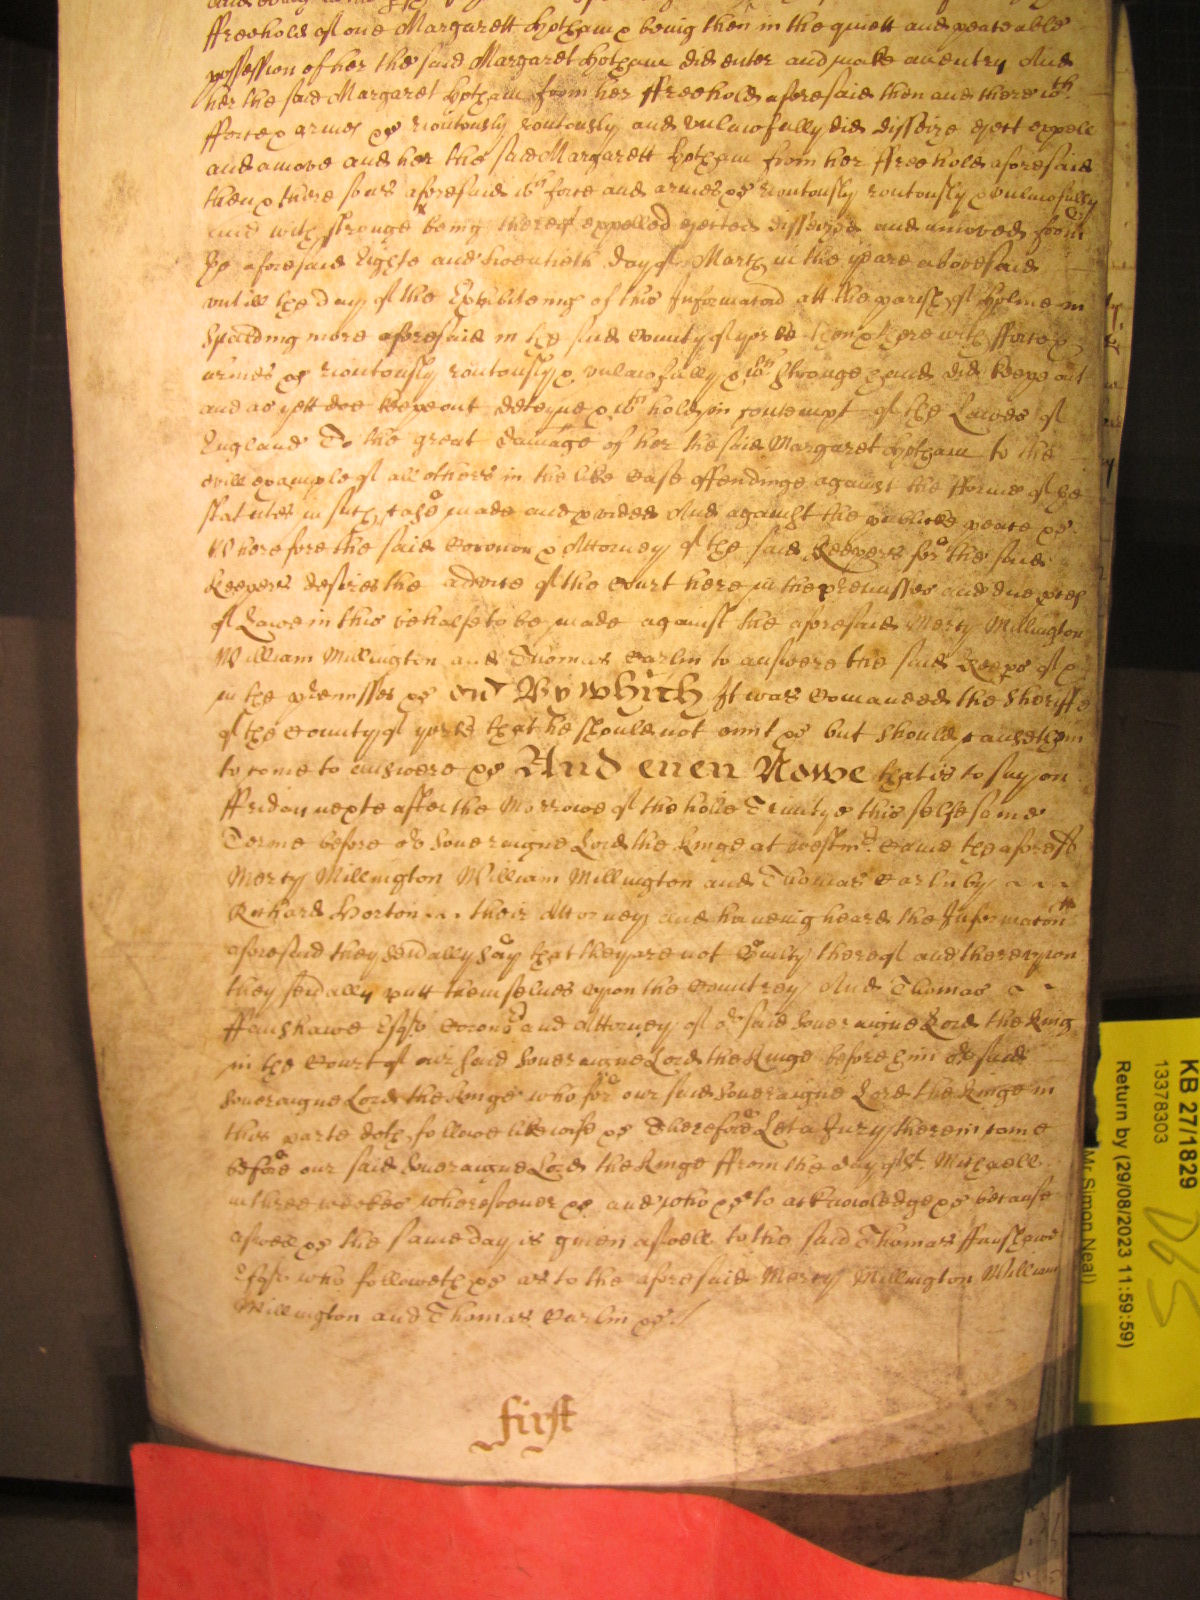 ffreehold of one Margarett Hotham & being then in the quiett and peaceable
possession of her the said Margaret Hotham did enter and make an entry And
her the said Margaret Hotham from her ffreehold aforesaid then and there wth
fforce & armes &c rioutously routously and unlawfully did disseize eject expell
and amove and her the said Margarett Hotham from her ffreehold aforesaid
then & there soe as aforesaid wth force and armes &c rioutously routously & unlawfully
and with stronge being thereof expelled ejected disseized and amoved from
the aforesaid Eighte and twentieth day of March in the yeare abovesaid
untill the day of the Exhibiteing of this Informacon att the parish of Holme in
Spalding more aforesaid in the said County of Yorke then & there with fforce &
armes &c rioutously routously & unlawfully & wth stronge hand did keepe out
and as yett doe keepe out deteyne & wth hold in contempt of the Lawes of
England To the great damage of her the said Margaret Hotham to the
evill example of all others in the like case offendinge against the fforme of the
statutes in such case made and provided And against the publicke peace &c
Wherefore the said Coronor & Attorney of the said Keepers for the said
Keepers desires the advice of the Court here in the premisses and due pces
of Lawe in this behalfe to be made against the aforesaid Mercy Millington
William Millington and Thomas Carlin to answere the said Keeps of &
in the premisses &c By which It was Comanded the Sheriffe
of the County of Yorke that he should not omit &c but should cause them
to come to answere &c And even Nowe that is to say on
ffriday nexte after the Morrowe of the holie Trinitye this selfe same
Terme before or Soveraigne Lord the Kinge at Westmr Came the aforesd
Mercy Millington William Millington and Thomas Carlin by
Richard Horton their Attorney and haveing heard the Informacon
aforesaid they sevally say that they are not Guilty thereof and thereupon
they sevally putt themselves upon the Countrey And Thomas
ffanshawe Esqr Coronr and Attorney of or said Soveraigne Lord the King
in the Court of our said Soveraigne Lord the Kinge before him or said
Soveraigne Lord the Kinge who for our said Soveraigne Lord the Kinge in
this parte doth followe likewise &c Therefore Let a Jury therein come
before our said Soveraigne Lord the Kinge ffrom the day of St Michaell
in three weekes wheresoever &c and who &c to acknowledge &c because
aswell &c the same day is given aswell to the said Thomas ffanshawe
Esqr who followeth &c as to the aforesaid Mercy Millington William
Millington and Thomas Carlin &c
first
KB 27/1829
13378303
Return by (29/08/2023 11:59:59)
Mr Simon Neal)